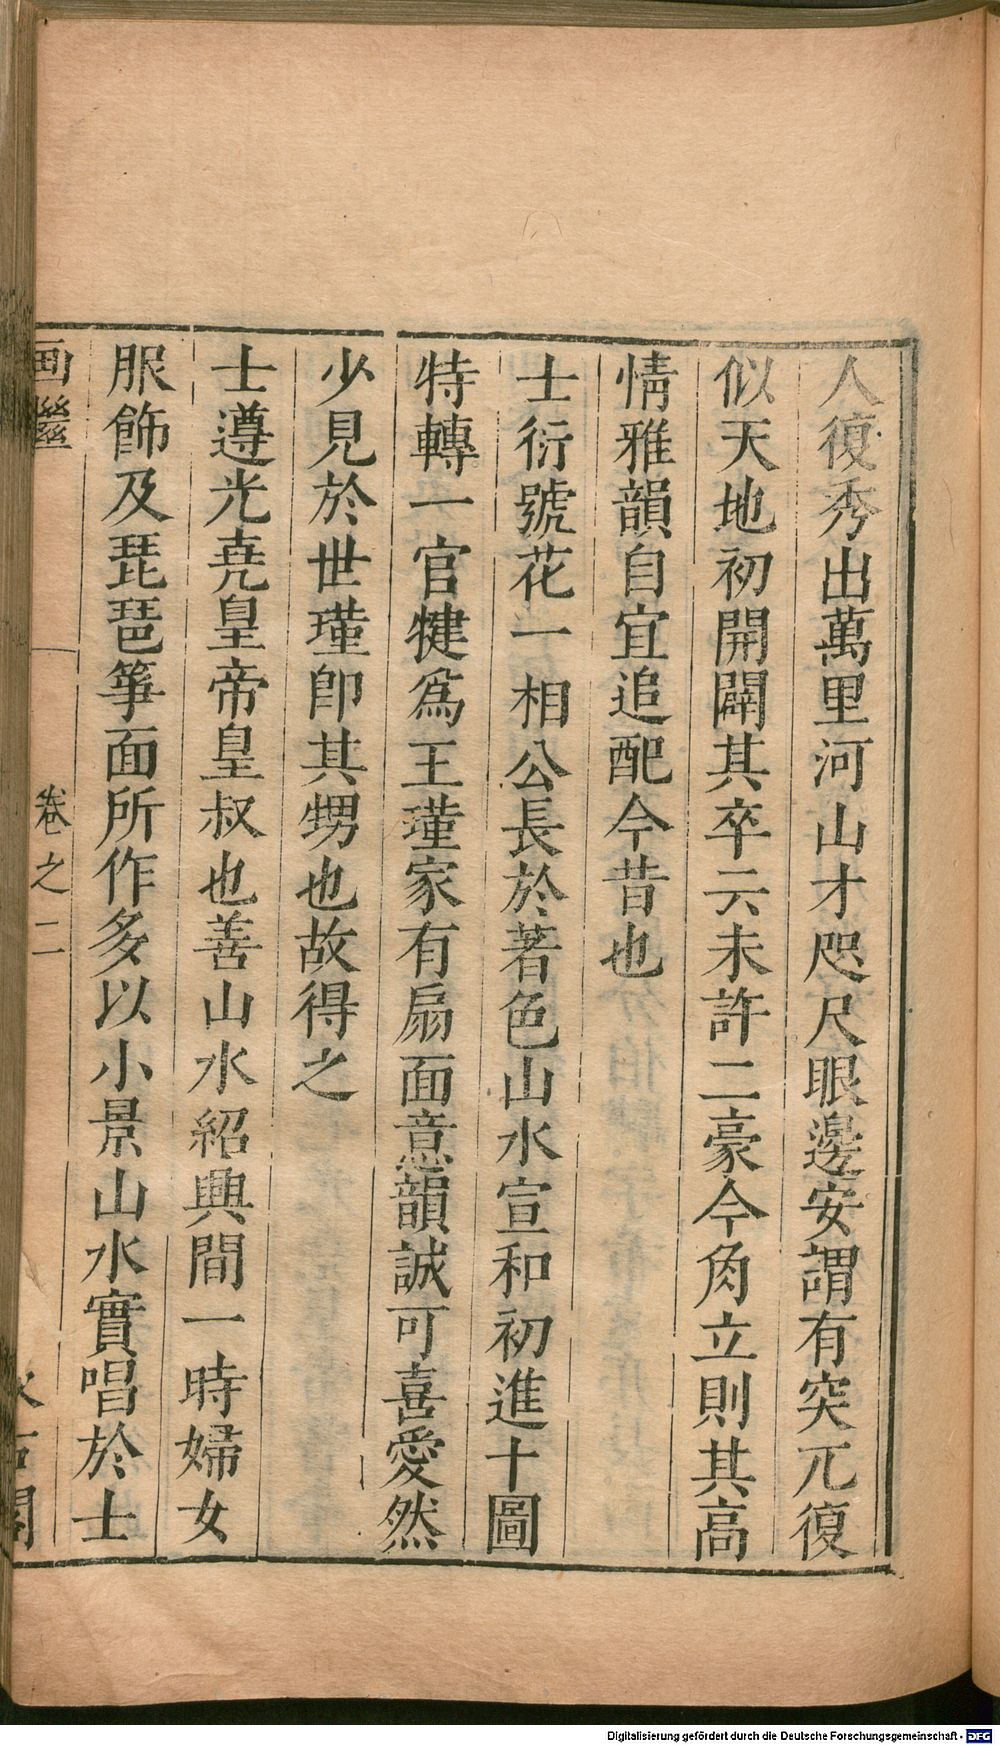 人復秀出萬里河山才咫尺眼邊安謂有突兀復
似天地初開闢其卒云未許二豪今角立則其高
情雅韻自宜追配今昔也
士衍號花一相公長於著色山水宣和初進十圖
特轉一官犍爲王瓘家有扇面意韻誠可喜愛然
少見於世瓘卽其甥也故得之
士遵光堯皇帝皇叔也善山水紹興間一時婦女
服飾及琵琶箏面所作多以小景山水實唱於士
画繼 卷之二
Digitalisierung gefördert durch die Deutsche Forschungsgemeinschaft - DFG